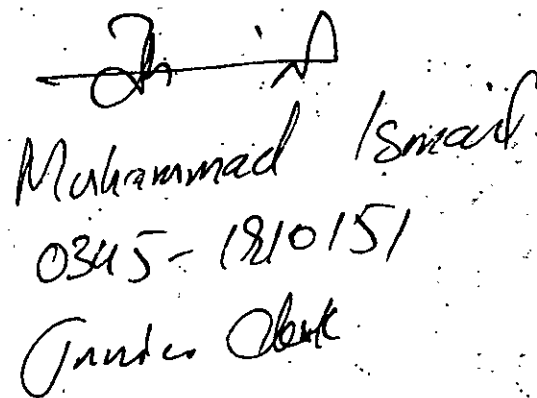 Muhammad Ismail
0345-1810151
Junior Clerk